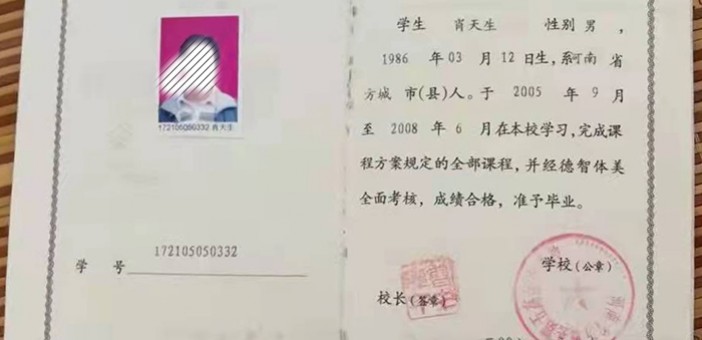 172105050332 肖天生
学 号 172105050332
学生 肖天生 性别 男，
1986 年 03 月 12 日生，系河南 省
方城 市(县)人。于 2005 年 9 月
至 2008 年 6 月在本校学习，完成课
程方案规定的全部课程，并经德智体美
全面考核，成绩合格，准予毕业。
学校(公章)
校长(签章)